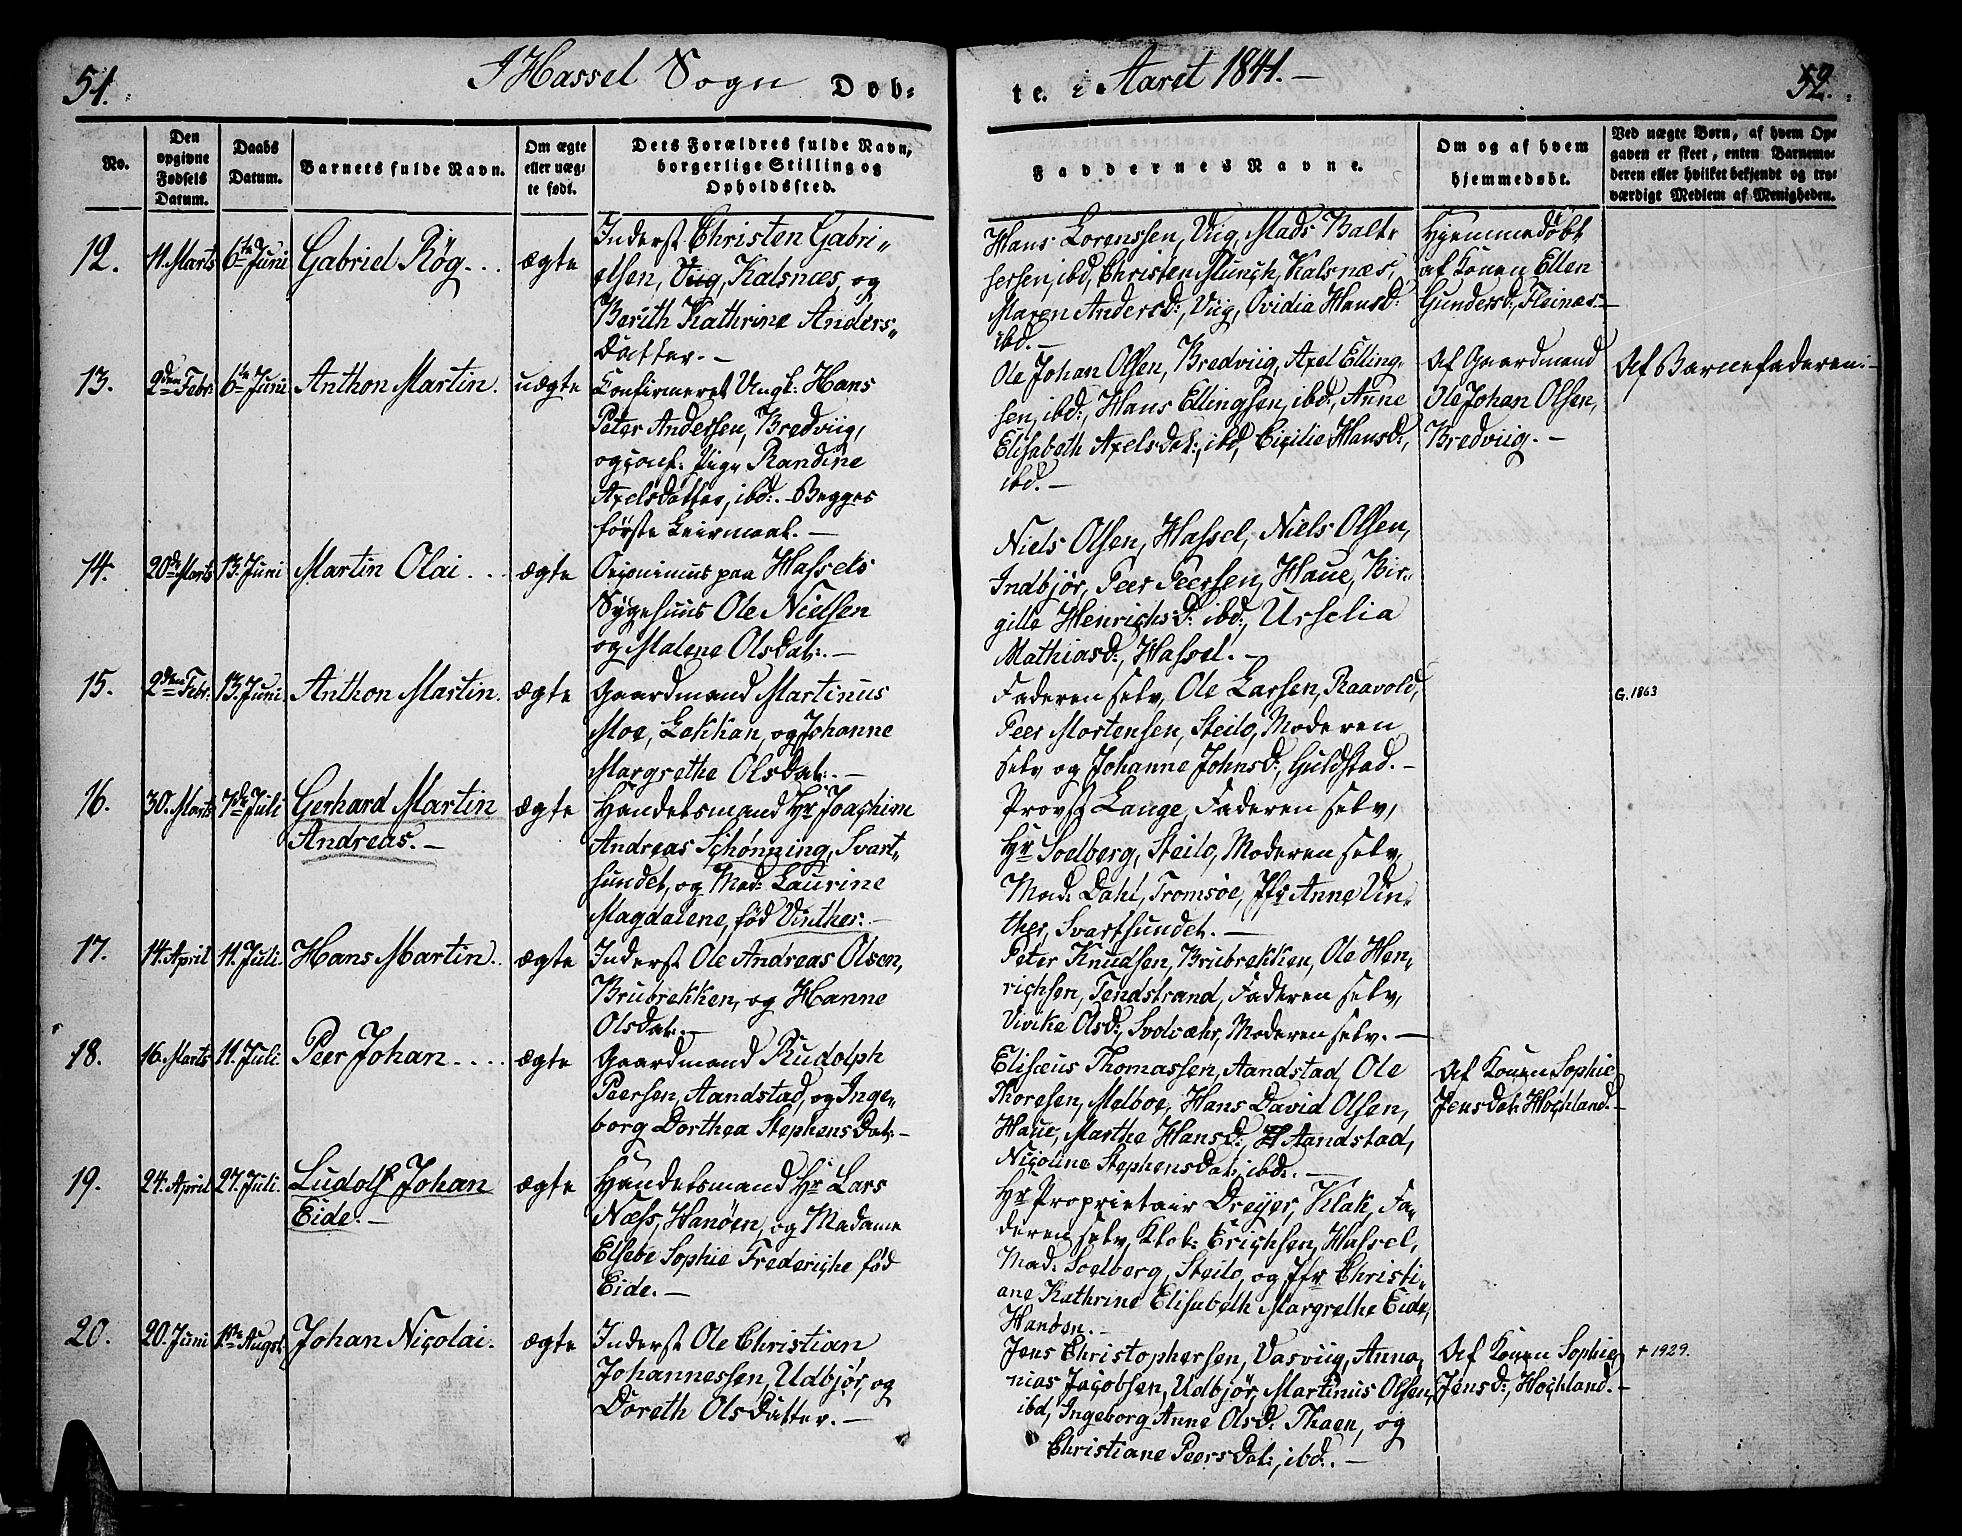 51.
I Hassel Sogn Døb-
No.
Den opgivne Fødsels Datum.
Daabs Datum.
Barnets fulde Navn.
Om ægte eller uægte født.
Dets Forældres fulde Navn, borgerlige Stilling og Opholdssted.
12. 11. Marts 6te Juni Gabriel Røg... ægte
Inderst Christen Gabri-
elsen, Vig, Kalsnæs, og
Berith Kathrine Anders-
Datter. —
13. 2den Febr. 6te Juni Anthon Martin. uægte
Confirmeret Ungk: Hans
Peter Anderssen, Bredviig,
og conf. Pige Randine
Axelsdatter, ibd:. Begges
første Leiermaal. —
14. 20de Marts 13. Juni Martin Olai... ægte
Oeconimus paa Hassels
Sygehuus Ole Nielsen
og Malene Olsdat:. —
15. 2den Febr. 13. Juni. Anthon Martin. ægte
Gaardmand Martinus
Moe, Lekkan, og Johanne
Margrethe Olsdat:. —
16. 30. Marts 7de Juli Gerhard Martin
Andreas. — ægte
Handelsmand Hr Joachim
Andreas Schønning, Svart-
sundet, og Mad: Laurine
Magdalene, fød Vinther. —
17. 14. April 11. Juli. Hans Martin. ægte
Inderst Ole Andreas Olsen,
Brubrekken, og Hanne
Olsdat:. —
18. 16. Marts 11. Juli. Peer Johan.... ægte
Gaardmand Rudolph
Peersen, Aandstad, og Inge-
borg Dorthea Stephensdat:. —
19. 24. April 27. Juli. Ludolf Johan
Eide. — ægte
Handelsmand Hr Lars
Næss, Hanøen, og Madame
Elsebe Sophie Frederiche fød
Eide. —
20. 20. Juni 1ste Augst. Johan Nicolai. ægte
Inderst Ole Christian
Johannessen, Udbjør, og
Doreth Olsdatter. —
te. i Aaret 1841. —
52.
Faddernes Navne.
Om og af hvem hjemmedøbt.
Ved uægte Børn, af hvem Op-
gaven er skeet, enten Barnemo-
deren eller hvilket bekjendt og tro-
værdigt Medlem af Menigheden.
Hans Lorenssen, Viig, Mads Balt-
sersen, ibd, Christen Munch, Kalsnæs,
Maren Andersd:, Viig, Ovidia Hansd:
ibd. —
Hjemmedøbt
af Konen Ellen
Gundersd:, Fleinæs. —
Ole Johan Olsen, Bredviig, Axel Elling-
sen, ibd:, Hans Ellingsen, ibd:, Anne
Elisabeth Axelsdat:, ibd, Cicilie Hansd:,
ibd. —
Af Gaardmand
Ole Johan Olsen,
Bredviig. —
Af Barnefaderen. —
Niels Olsen, Hassel, Niels Olsen,
Indbjør, Peer Peersen, Haue, Bir-
gitte Henrichsd: ibd:, Urselia
Mathiasd:, Hassel. —
Faderen selv, Ole Larsen, Raavold,
Peer Mortensen, Steilo, Moderen
selv og Johanne Johnsd:, Guldstad. —
G. 1863
Provst Lange, Faderen selv,
Hr Soelberg, Steilo, Moderen selv,
Mad: Dahl, Tromsøe, Jfr Anne Vin-
ther, Svartsundet. —
Peter Knudsen, Brubrekken, Ole Hen-
richsen, Tendstrand, Faderen selv,
Vivike Olsd:, Svolvæhr, Moderen selv. —
Elisæus Thomassen, Aandstad, Ole
Thoresen, Melboe, Hans David Olsen,
Haue, Marthe Hansd:, Aandstad,
Nicoline Stephensdat:, ibd:. —
Af Konen Sophie
Jensdat: Hochland. —
Hr Proprietair Dreyer, Klak, Fa-
deren selv, Klok: Erichsen, Hassel,
Mad: Soelberg, Steilo, og Jfr Christi-
ane Kathrine Elisabeth Margrethe Eide,
Hanøen. —
Jens Christophersen, Vasviig, Anna-
nias Jacobsen, Udbjør, Martinus Olsen,
ibd, Ingeborg Anne Olsd: Thaen, og
Christiane Peersdat:, ibd:. —
Af Konen Sophie
Jensd:, Hochland. —
+ 1929.